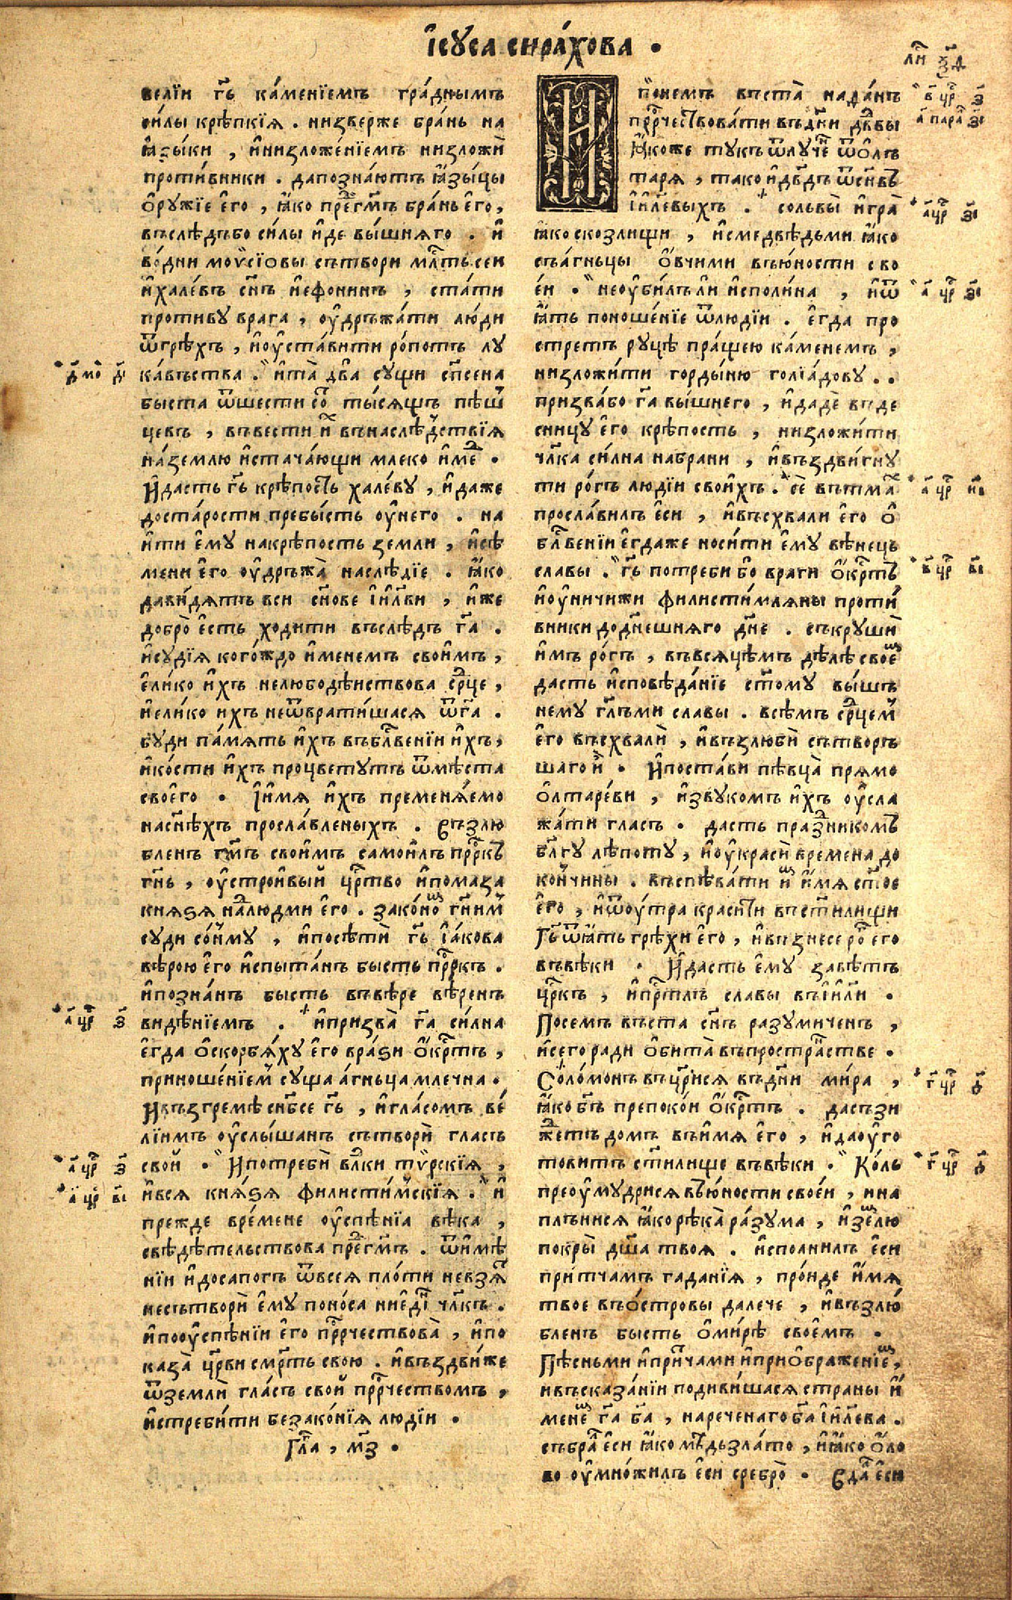 І҆сꙋса сира́хова .
велїи гь҃ ка́менїемъ гра́днымъ
си́лы крѣ́пкїѧ . низверже бра́нь на
ꙗ҆зы́ки , и҆низложе́нїемъ низложѝ
проти́вники . дапозна́ютъ ꙗ҆зы́цы
ѻ҆рꙋ́жїе е҆го̀ , ꙗ҆́ко
въслѣ́дъбо си́лы и҆́де вы́шнѧго . и҆
во́дни моѵ̈сїо́вы сътвори мл҃ть сеи
и҆хале́въ сн҃ъ и҆ефонинъ , ста́ти
проти́вꙋ врага̀ , оу҆дръжа́ти лю́ди
ѿгрѣ́хъ , и҆оу҆ста́вити ро́потъ лꙋ
ка́въства . и҆та̀ два̀ сꙋщи сп҃сена
быста ѿшести тысѧщъ пѣш
цевъ , въвести и҆̀ въ наслѣ́дствїѧ
на́землю и҆стача́ющи млеко и҆ме́д .
И҆дасть гь҃ крѣ́пость хале́вꙋ , и҆да́же
доста́рости пребы́сть оу҆него . на
и҆ти е҆мꙋ накрѣ́пость земли , и҆сѣ
мени е҆го оу҆дръжа̀ наслѣ́дїе . ꙗ҆́ко
дави́дѧтъ вси сн҃ове і҆и҃лви , и҆́же
добро̀ е҆сть ходи́ти въслѣ́дъ га҃ .
и҆сꙋдїѧ кого́ждо и҆менемъ свои́мъ ,
е҆ли́ко и҆́хъ нелюбодѣ́иствова ср҃це ,
и҆ели́ко и҆хъ неѿврати́шасѧ ѿга҃ .
бꙋди па́мѧть и҆́хъ въбл҃венїи и҆́хъ ,
и҆ко́сти и҆́хъ процветꙋтъ ѿмѣ́ста
своего̀ . І҆и҆мѧ и҆́хъ премѣнѧ́емо
насн҃ѣхъ просла́вленыхъ . Възлю
бленъ гм҃ъ свои́мъ самои́лъ прр҃къ
гн҃ь , оу҆стро́ивый цр҃тво и҆пома́за
кнѧѕѧ на́людми е҆го . зако́номъ гн҃имъ
сꙋди со́нмꙋ , и҆посѣтѝ гь҃ і҆а́кова
вѣ́рою е҆го и҆спы́танъ бысть прр҃къ .
и҆позна́нъ бысть въвѣ́ре вѣ́ренъ
видѣ́нїемъ . и҆призва̀ га҃ си́лна
е҆гда ѻ҆скорбѧ́хꙋ е҆го вра́ѕи ѻ҆́крестъ ,
приноше́нїемъ сꙋща а҆́гньца млечна .
И҆възгремѣ̀ снб҃се гь҃ , и҆гла́сомъ ве́
лїимъ оу҆слы́шанъ сътворѝ гласъ
свой . И҆потребѝ вл҃ки тѵ́рскїѧ ,
и҆всѧ кнѧ́ѕѧ филисти́мскїѧ . и҆
пре́жде вре́мене оу҆спѣ́нїа вѣ́ка ,
свѣдѣ́тельствова . ѿи҆мѣ́
нїи и҆досапогъ ѿвсеѧ пло́ти невзѧ́
несътворѝ е҆мꙋ поно́са ниеди́ чл҃къ .
и҆пооу҆спѣ́нїи е҆го прр҃чествова̀ , и҆по
каза̀ цр҃ви смр҃ть свою . и҆въздви́же
ѿземлѝ гла́съ свой прр҃чествомъ ,
и҆стреби́ти безако́нїѧ лю́дїи .
Гла҃ , м҃з .
И҆понемъ въста̀ нада́нъ
прр҃чествова́ти въдни дв҃дви
ꙗ҆́коже тꙋкъ ѿлꙋче́н ѿо҆л
тарѧ̀ , тако и҆дв҃дъ ѿсн҃въ
і҆и҃левыхъ . со́львы и҆гра̀
ꙗ҆́ко скозли́щи , и҆смедвѣ́дьми ꙗ҆́ко
съа́гньцы ѻ҆́вчими въю́ности сво
е́и . неоу҆би́лъли и҆споли́на , и҆ѿ
ꙗ҆́тъ поноше́нїе ѿлю́дїи . е҆гда про
стретъ рꙋцѣ̀ пра́щею ка́менемъ ,
низложи́ти горды́ню голїа́довꙋ . .
призва́бо га҃ вы́шнего , и҆дадѐ въде
сни́цꙋ е҆го крѣ́пость , низложи́ти
чл҃ка си́лна набра́ни , и҆въздви́гнꙋ
ти ро́гъ лю́дїи свои́хъ . се̂ вътма́х
просла́вилъ е҆си , и҆въсхвали е҆го ѻ҆
бл҃венїи е҆гда́же носи́ти е҆мꙋ вѣ́нець
сла́вы . гь҃ потреби бо враги ѻ҆́крестъ
и҆оу҆ничижи филистимлѧны проти́
вники доднешнѧго дн҃е . съкрꙋшѝ
и҆мъ ро́гъ , въвсѧ́цѣмъ дѣ́лѣ своем
дасть и҆сповѣ́данїе ст҃омꙋ вы́шъ
немꙋ гл҃ъми сла́вы . всѣ́мъ ср҃цем
е҆го въсхвалѝ , и҆възлюбѝ сътворъ
шаго и҆̀ . И҆поста́ви пѣвца̀ прѧ́мо
ѻ҆лтаре́ви , и҆зву́комъ и҆́хъ оу҆сла
жа́ти гласъ . дасть пра́здникомъ
бл҃гꙋ лѣ́потꙋ , и҆оу҆красѝ времена до
кончи́ны . въспѣва́ти и҆мѧ ст҃ое
е҆го , и҆ѿоу́тра красити въст҃илищи
Гь҃ ѿꙗ҆́тъ грѣ́хи е҆го , и҆възнесе ро́г его
въвѣ́ки . И҆дасть е҆мꙋ завѣ́тъ
цр҃къ , и҆прⷭ҇тлъ сла́вы въі҆и҃ли .
Посемъ въста сн҃ъ разꙋ́миченъ ,
и҆сего ра́ди ѻ҆бита̀ въпростра́нстве .
Соломо́нъ въцр҃исѧ въдни ми́ра ,
ꙗ҆́ко бг҃ъ препоко́и ѻ҆́крестъ . дасъзи
жетъ до́мъ въи҆мѧ е҆го , и҆даоу҆го
то́витъ ст҃и́лище въвѣ́ки . Ко́ль
преоу҆мꙋдрисѧ въю́ности свое́и , и҆на
плънисѧ ꙗ҆́ко рѣка̀ ра́зꙋма , и҆землю
покры̀ дш҃а твоѧ . и҆спо́лнилъ е҆си
при́тчамъ гада́нїѧ , про́иде и҆́мѧ
твое въо́стровы далече , и҆възлю́
бленъ бысть ѻ҆мирѣ свое́мъ .
Пѣ́сньми и҆при́тчами и҆приѻбраже́нїем ,
и҆въсказа́нїи подиви́шасѧ страны̀ и҆
менем га҃ ба҃ , нарече́наго ба҃ і҆и҃лева .
събра́л е҆си ꙗ҆́ко мѣ́дь зла́то , и҆ꙗ҆́ко ѻ҆́ло
во оу҆мно́жилъ е҆си сребро̀ . Вда́л е҆си